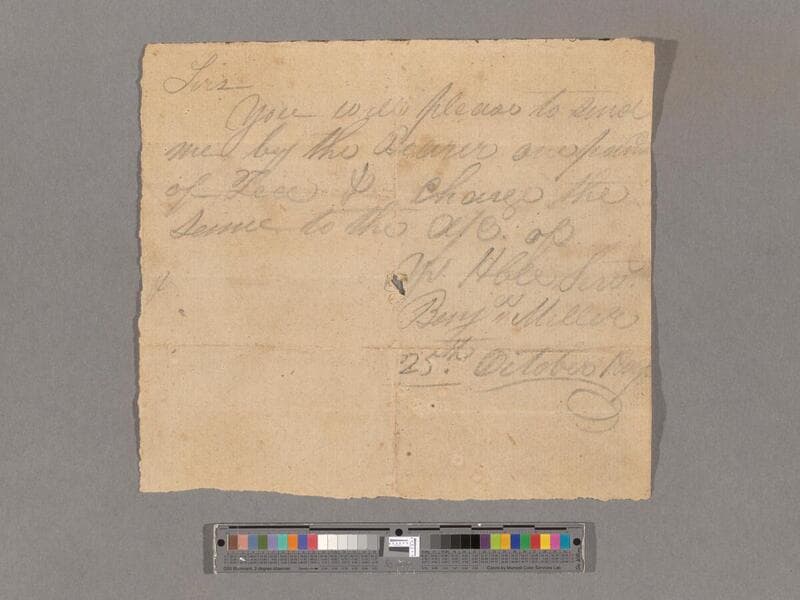 Sirs
You will please to send
me by the Bearer one pound
of Tea & Charge the
same to the A/C. of
Yr. Hble Servt.
Benjn. Miller
25th. October